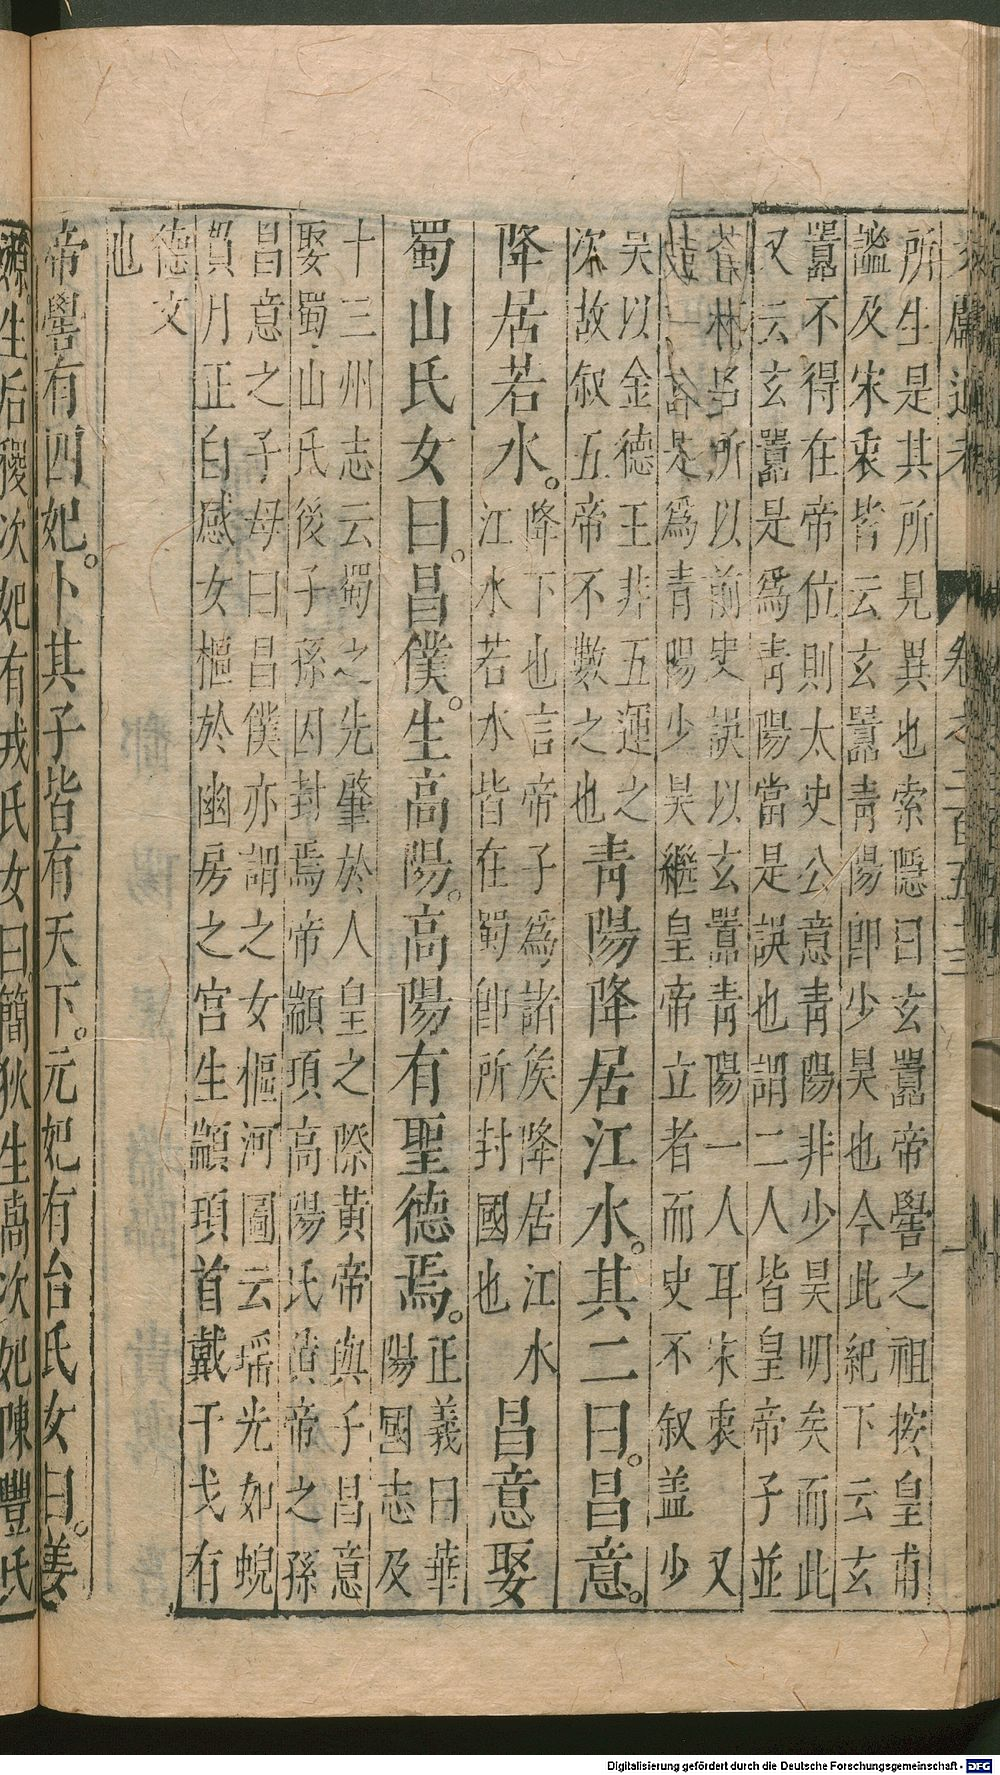 文獻通考 卷之二百五十三 一
所生是其所見異也索隱曰玄囂帝嚳之祖按皇甫
謐及宋衷皆云玄囂青陽卽少昊也今此紀下云玄
囂不得在帝位則太史公意青陽非少昊明矣而此
又云玄囂是爲青陽當是誤也謂二人皆皇帝子並
列其名所以前史誤以玄囂青陽一人耳宋衷又
云玄囂青陽是爲青陽少昊繼皇帝立者而史不叙盖少
吴以金德王非五運之
次故叙五帝不數之也
青陽降居江水。其二曰。昌意。
降居若水。
降下也言帝子爲諸矦降居江水
江水若水皆在蜀卽所封國也
昌意娶
蜀山氏女曰。昌僕。生高陽。高陽有聖德焉。
正義曰華
陽國志及
十三州志云蜀之先肇於人皇之際黃帝與子昌意
娶蜀山氏後子孫因封焉帝顓頊高陽氏黃帝之孫
昌意之子母曰昌僕亦謂之女樞河圖云瑤光如蜺
貫月正白感女樞於幽房之宮生顓頊首戴干戈有
德文
也
帝嚳有四妃。卜其子皆有天下。元妃有台氏女曰。姜
嫄。生后稷次妃有戎氏女曰。簡狄生卨次妃陳豐氏
Digitalisierung gefördert durch die Deutsche Forschungsgemeinschaft - DFG